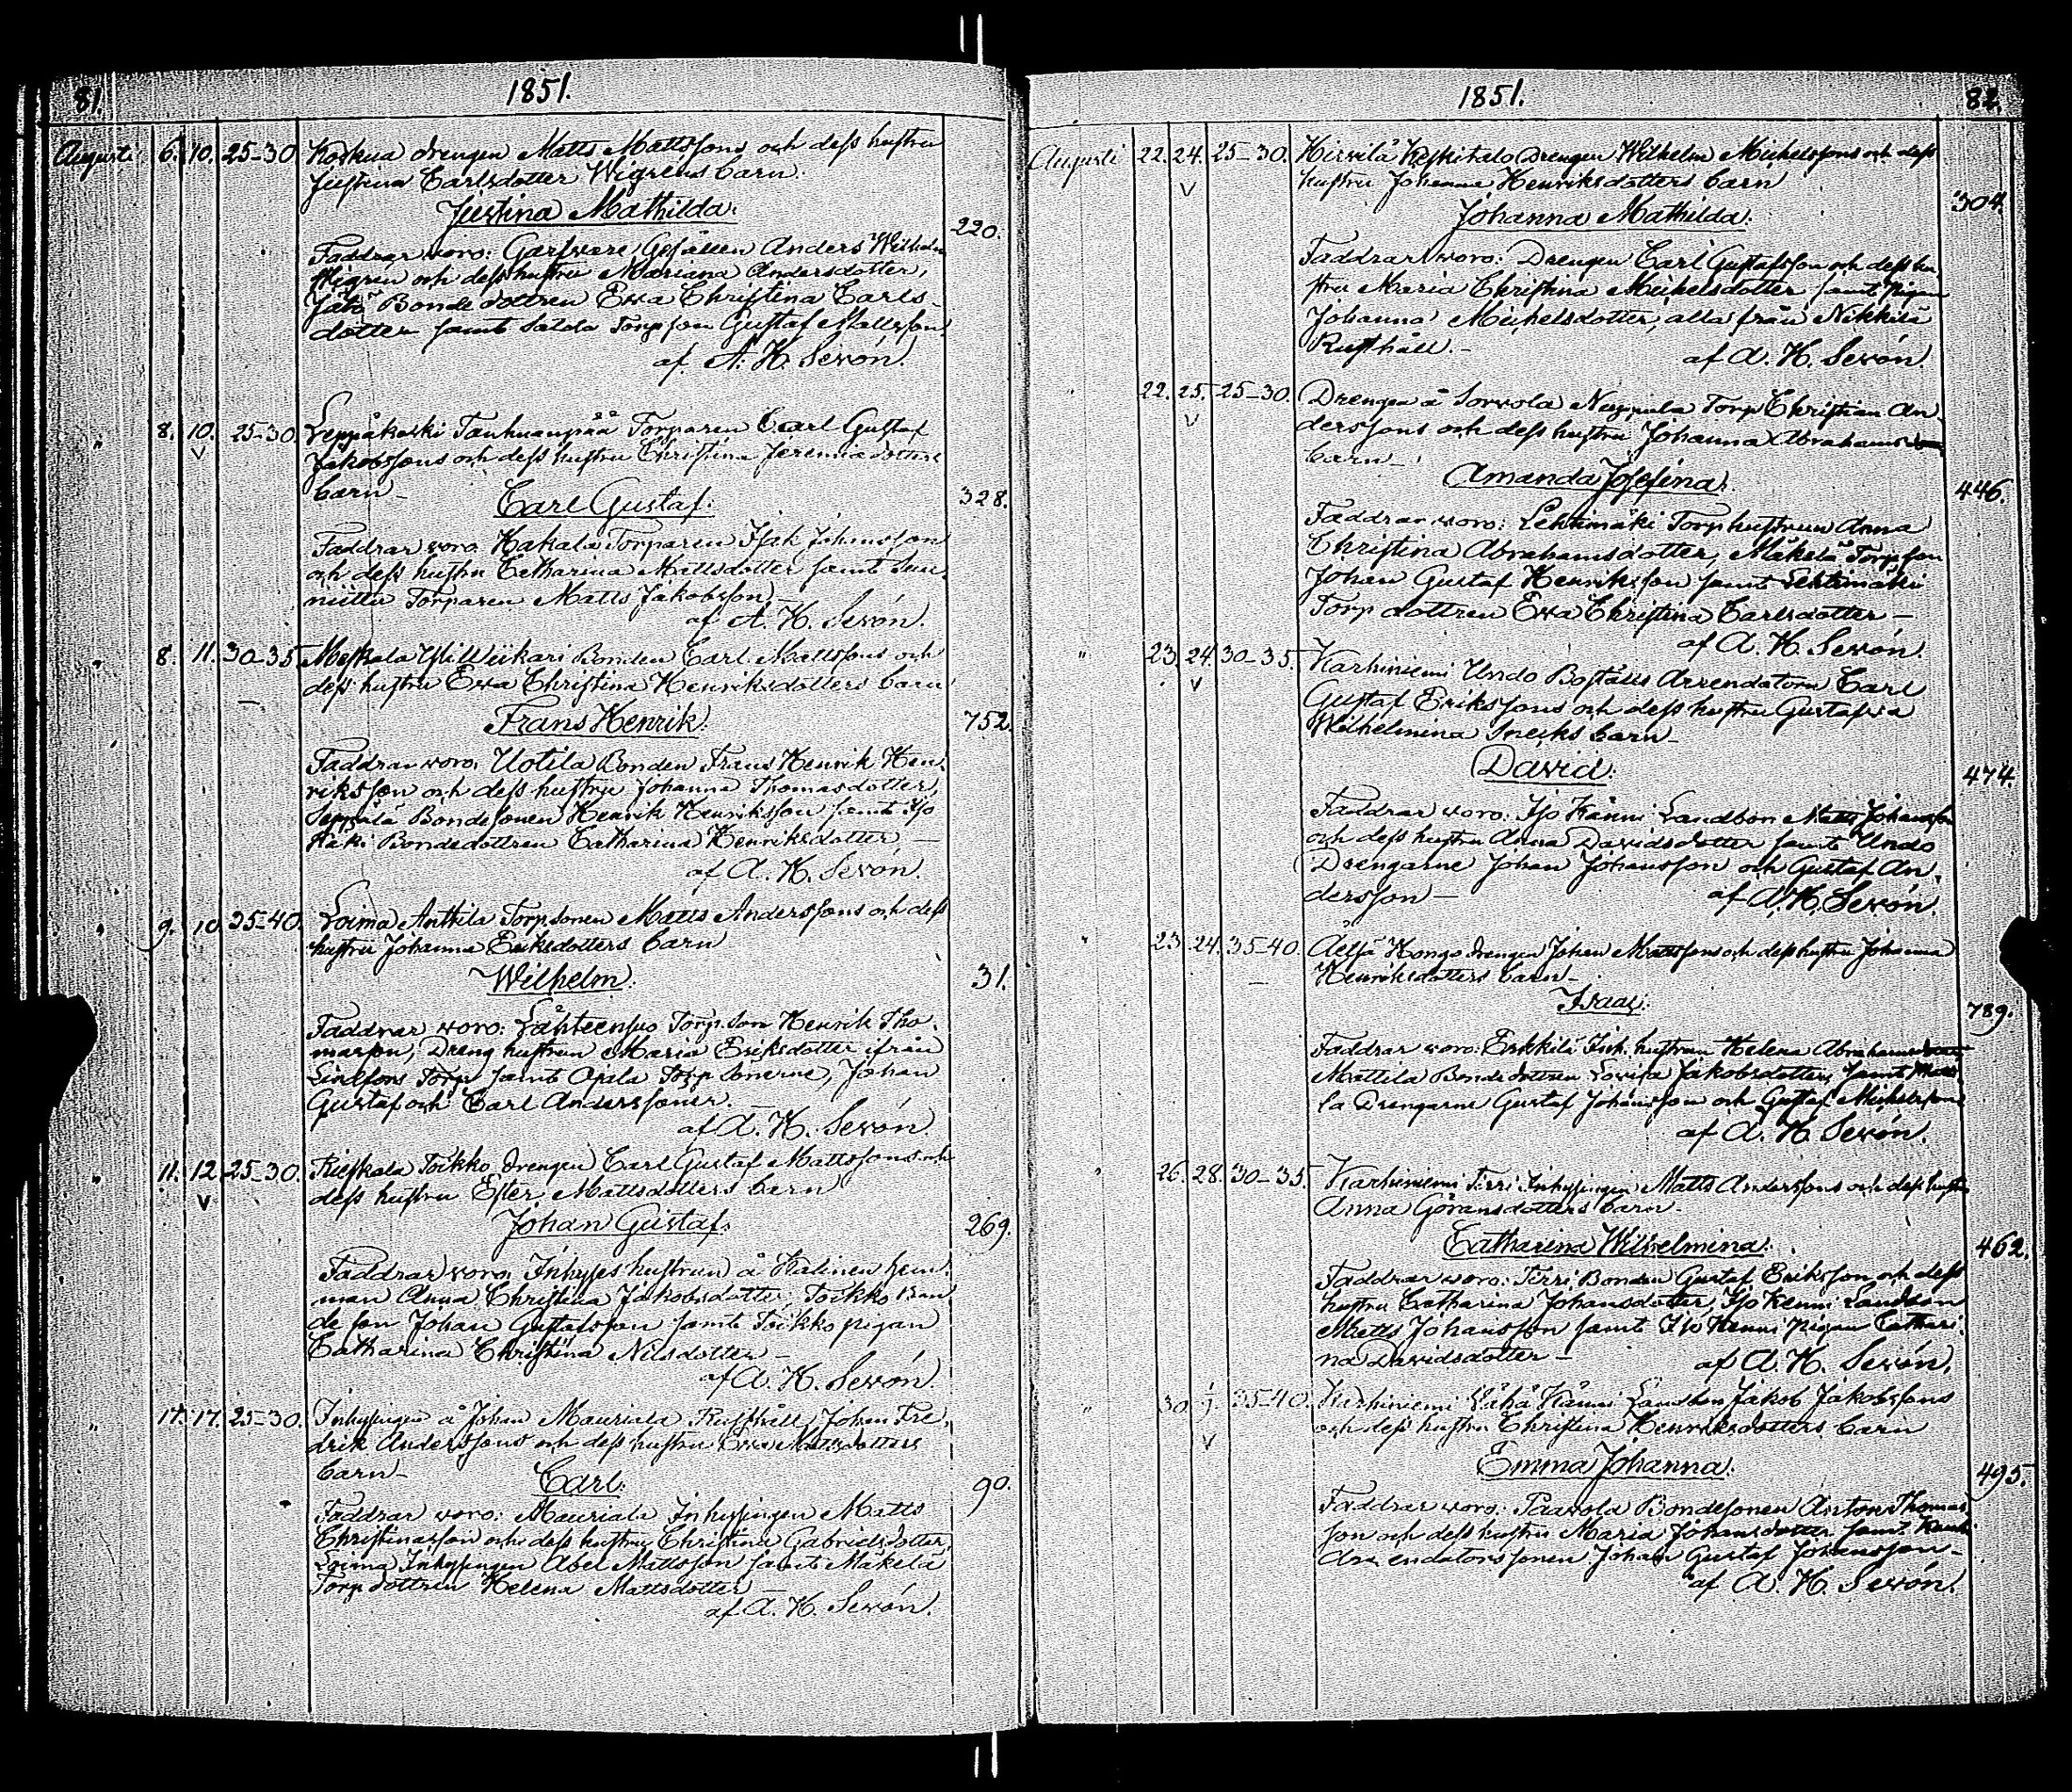 81. 1851.
Augusti 6. 10. 25–30 Koskua drengen Matts Mattssons och dess hustru
Justina Carlsdotter Wigrens barn.
Justina Mathilda. 220.
Faddrar woro: Garfware Gesällen Anders Wilhelm
Wigren och dess hustru Mariana Andersdotter,
Bonde dottren Ewa Christina Carls-
dotter samt Torp son Gustaf Mattsson
af A. H. Sevón.
" 8. 10. 25–30. Leppäkoski Tanhuanpää Torparen Carl Gustaf
v Jakobssons och dess hustru Christina Jeremiædotters
barn–
Carl Gustaf. 328.
Faddrar woro: Hakala Torparen Isak Johansson
och dess hustru Catharina Mattsdotter samt Suu-
niittu Torparen Matts Jakobsson–
af A. H. Sevón.
" 8. 11. 30–35 Meskala Yli Wiikari Bonden Carl Mattssons och
– dess hustru Ewa Christina Henriksdotters barn
Frans Henrik. 752.
Faddrar woro: Uotila Bonden Frans Henrik Hen-
riksson och dess hustru Johanna Thomasdotter,
Seppälä Bondesonen Henrik Henriksson samt Iso
Bondedottren Catharina Henriksdotter, –
af A. H. Sevón.
" 9. 10. 35–40. Loima Anttila Torpsonen Matts Anderssons och dess
hustru Johanna Eriksdotters barn
Wilhelm. 31.
Faddrar woro: Lähteensuo Torp. son Henrik Tho-
masson, Dreng hustrun Maria Eriksdotter ifrån
Torp samt Ojala Torp sönerne, Johan
Gustaf och Carl Anderssöner.
af A. H. Sevón.
" 11. 12. 25–30. Rieskala Toikko drengen Carl Gustaf Mattssons och
v dess hustru Ester Mattsdotters barn
Johan Gustaf. 269.
Faddrar woro: Inhyses hustrun å Kalinen hem-
man Anna Christina Jakobsdotter, Toikko Bon-
de son Johan Gustafsson samt Toikko pigan
Catharina Christina Nilsdotter–
af A. H. Sevón.
" 17. 17. 25–30. Inhysingen å Johan Mauriala Rusthåll, Johan Fre-
drik Anderssons och dess hustru Ewa Mattsdotters
barn–
Carl. 90.
Faddrar woro: Mauriala Inhysingen Matts
Christiansson och dess hustru Christina Gabrielsdotter,
Loima Inhysingen Abel Mattsson samt Mäkelä
Torp dottren Helena Mattsdotter–
af A. H. Sevón.
1851. 82.
Augusti 22. 24. 25–30. Hirvilä Keskitalo Drengen Wilhelm Michelssons och dess
v hustru Johanna Henriksdotters barn
Johanna Mathilda. 304.
Faddrar woro: Drengen Carl Gustafsson och dess hu-
stru Maria Christina Michelsdotter samt pigan
Johanna Michelsdotter, alla från Nikkilä
Rusthåll.–
af A. H. Sevón.
22. 25. 25–30. Drengen å Sorvola Torp Christian An-
v derssons och dess hustru Johanna Abrahams
barn–
Amanda Josefina. 446.
Faddrar woro: Lehtimäki Torp hustrun Anna
Christina Abrahamsdotter, Mäkelä Torp son
Johan Gustaf Henriksson samt Lehtimäki
Torp dottren Ewa Christina Carlsdotter–
af A. H. Sevón.
" 23. 24. 30–35. Karhiniemi Undo Boställs Arrendatorn Carl
v Gustaf Erikssons och dess hustru Gustafva
Wilhelmina barn–
David. 474.
Faddrar woro: Iso Känni Landbon Matts Johansson
och dess hustru Anna Davidsdotter samt Undo
Drengarne Johan Johansson och Gustaf An-
dersson–
af A. H. Sevón.
" 23. 24. 35–40. Hongo drengen Johan Mattssons och dess hustru Johanna
– Henriksdotters barn–
Isaac. 789.
Faddrar woro: Erkkilä Inh. hustrun Helena Abrahamsdotter
Mattila Bonde dottren Lovisa Jakobsdotter, samt
la Drengarne Gustaf Johansson och Gustaf Michelsson
af A. H. Sevón.
" 26. 28. 30–35. Karhiniemi Ferri Inhysingen Matts Anderssons och dess hustru
Anna Göransdotters barn–
Catharina Wilhelmina. 462.
Faddrar woro: Ferri Bonden Gustaf Eriksson och dess
hustru Catharina Johansdotter, Iso Kenni Landbon
Matts Johansson samt Iso Kenni pigan Cathari-
na Davidsdotter–
af A. H. Sevón.
" 30. 35–40. Karhiniemi Wähä Känni Landbon Jakob Jakobssons
v och dess hustru Christina Henriksdotters barn
Emma Johanna. 495.
Faddrar woro: Paavola Bondesonen Anton Thomas-
son och dess hustru Maria Johansdotter samt
Arrendators sonen Johan Gustaf Johansson–
af A. H. Sevón.